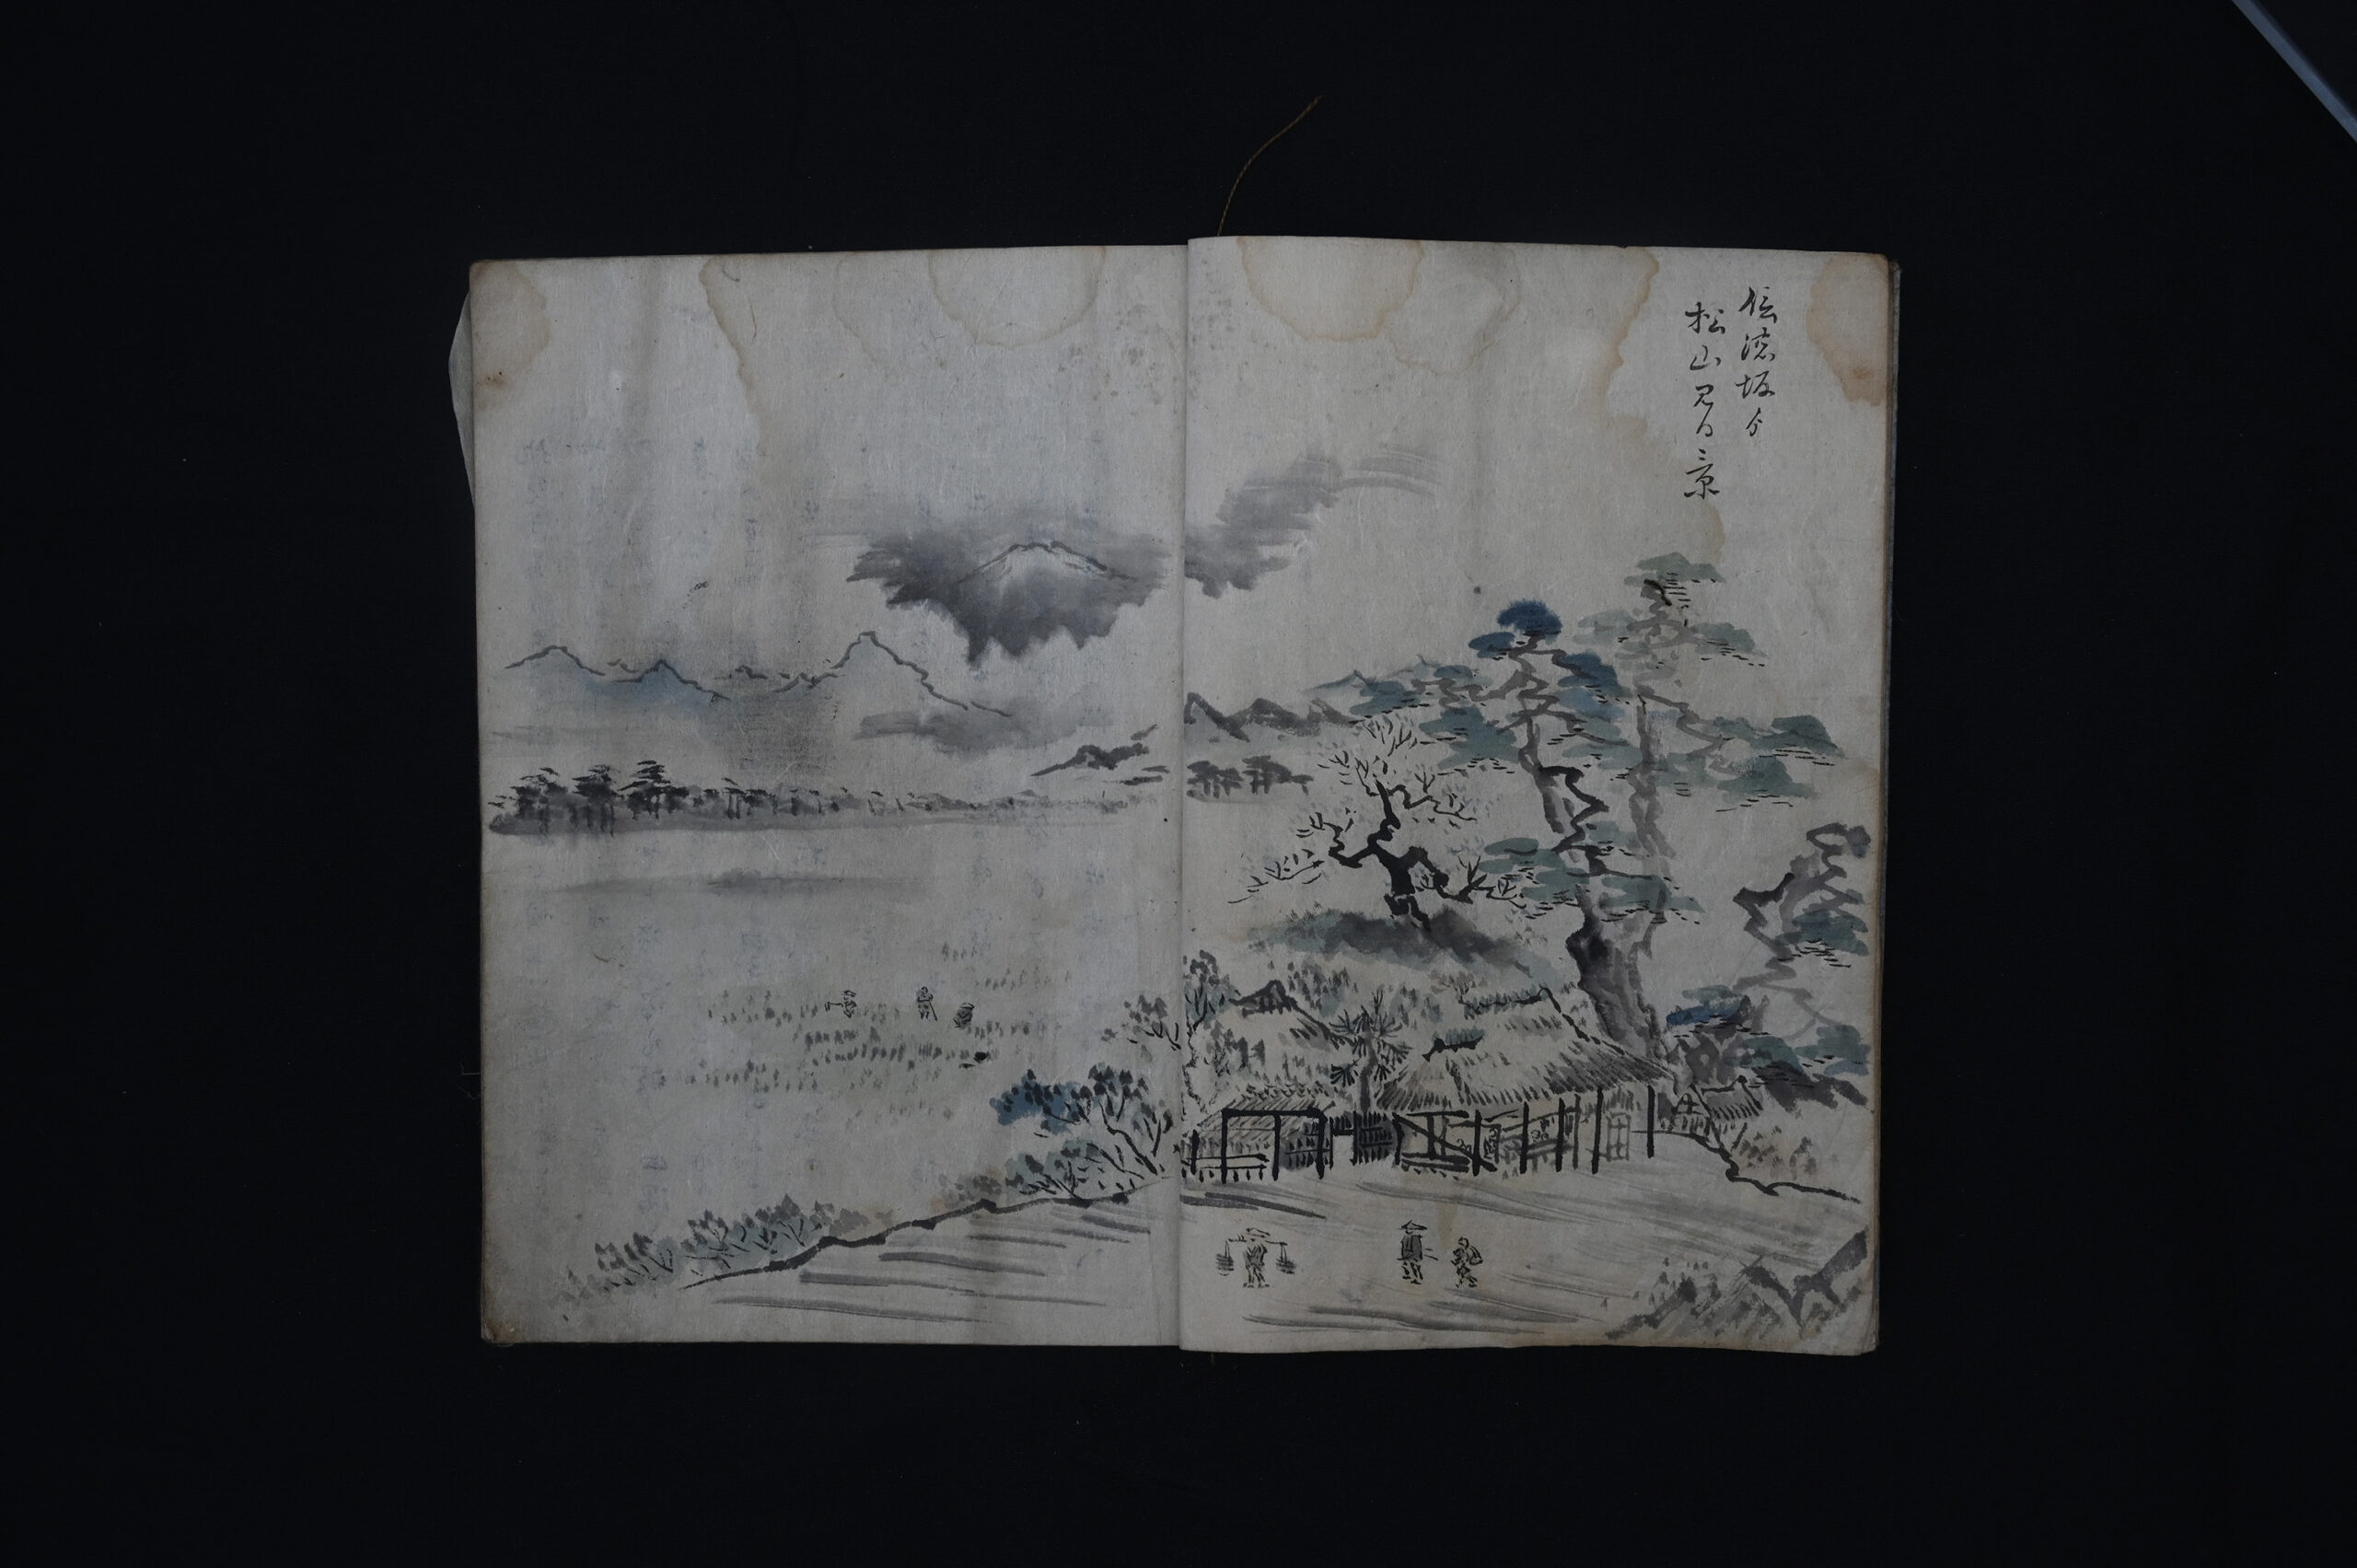 伝法坂ゟ
松山見る景